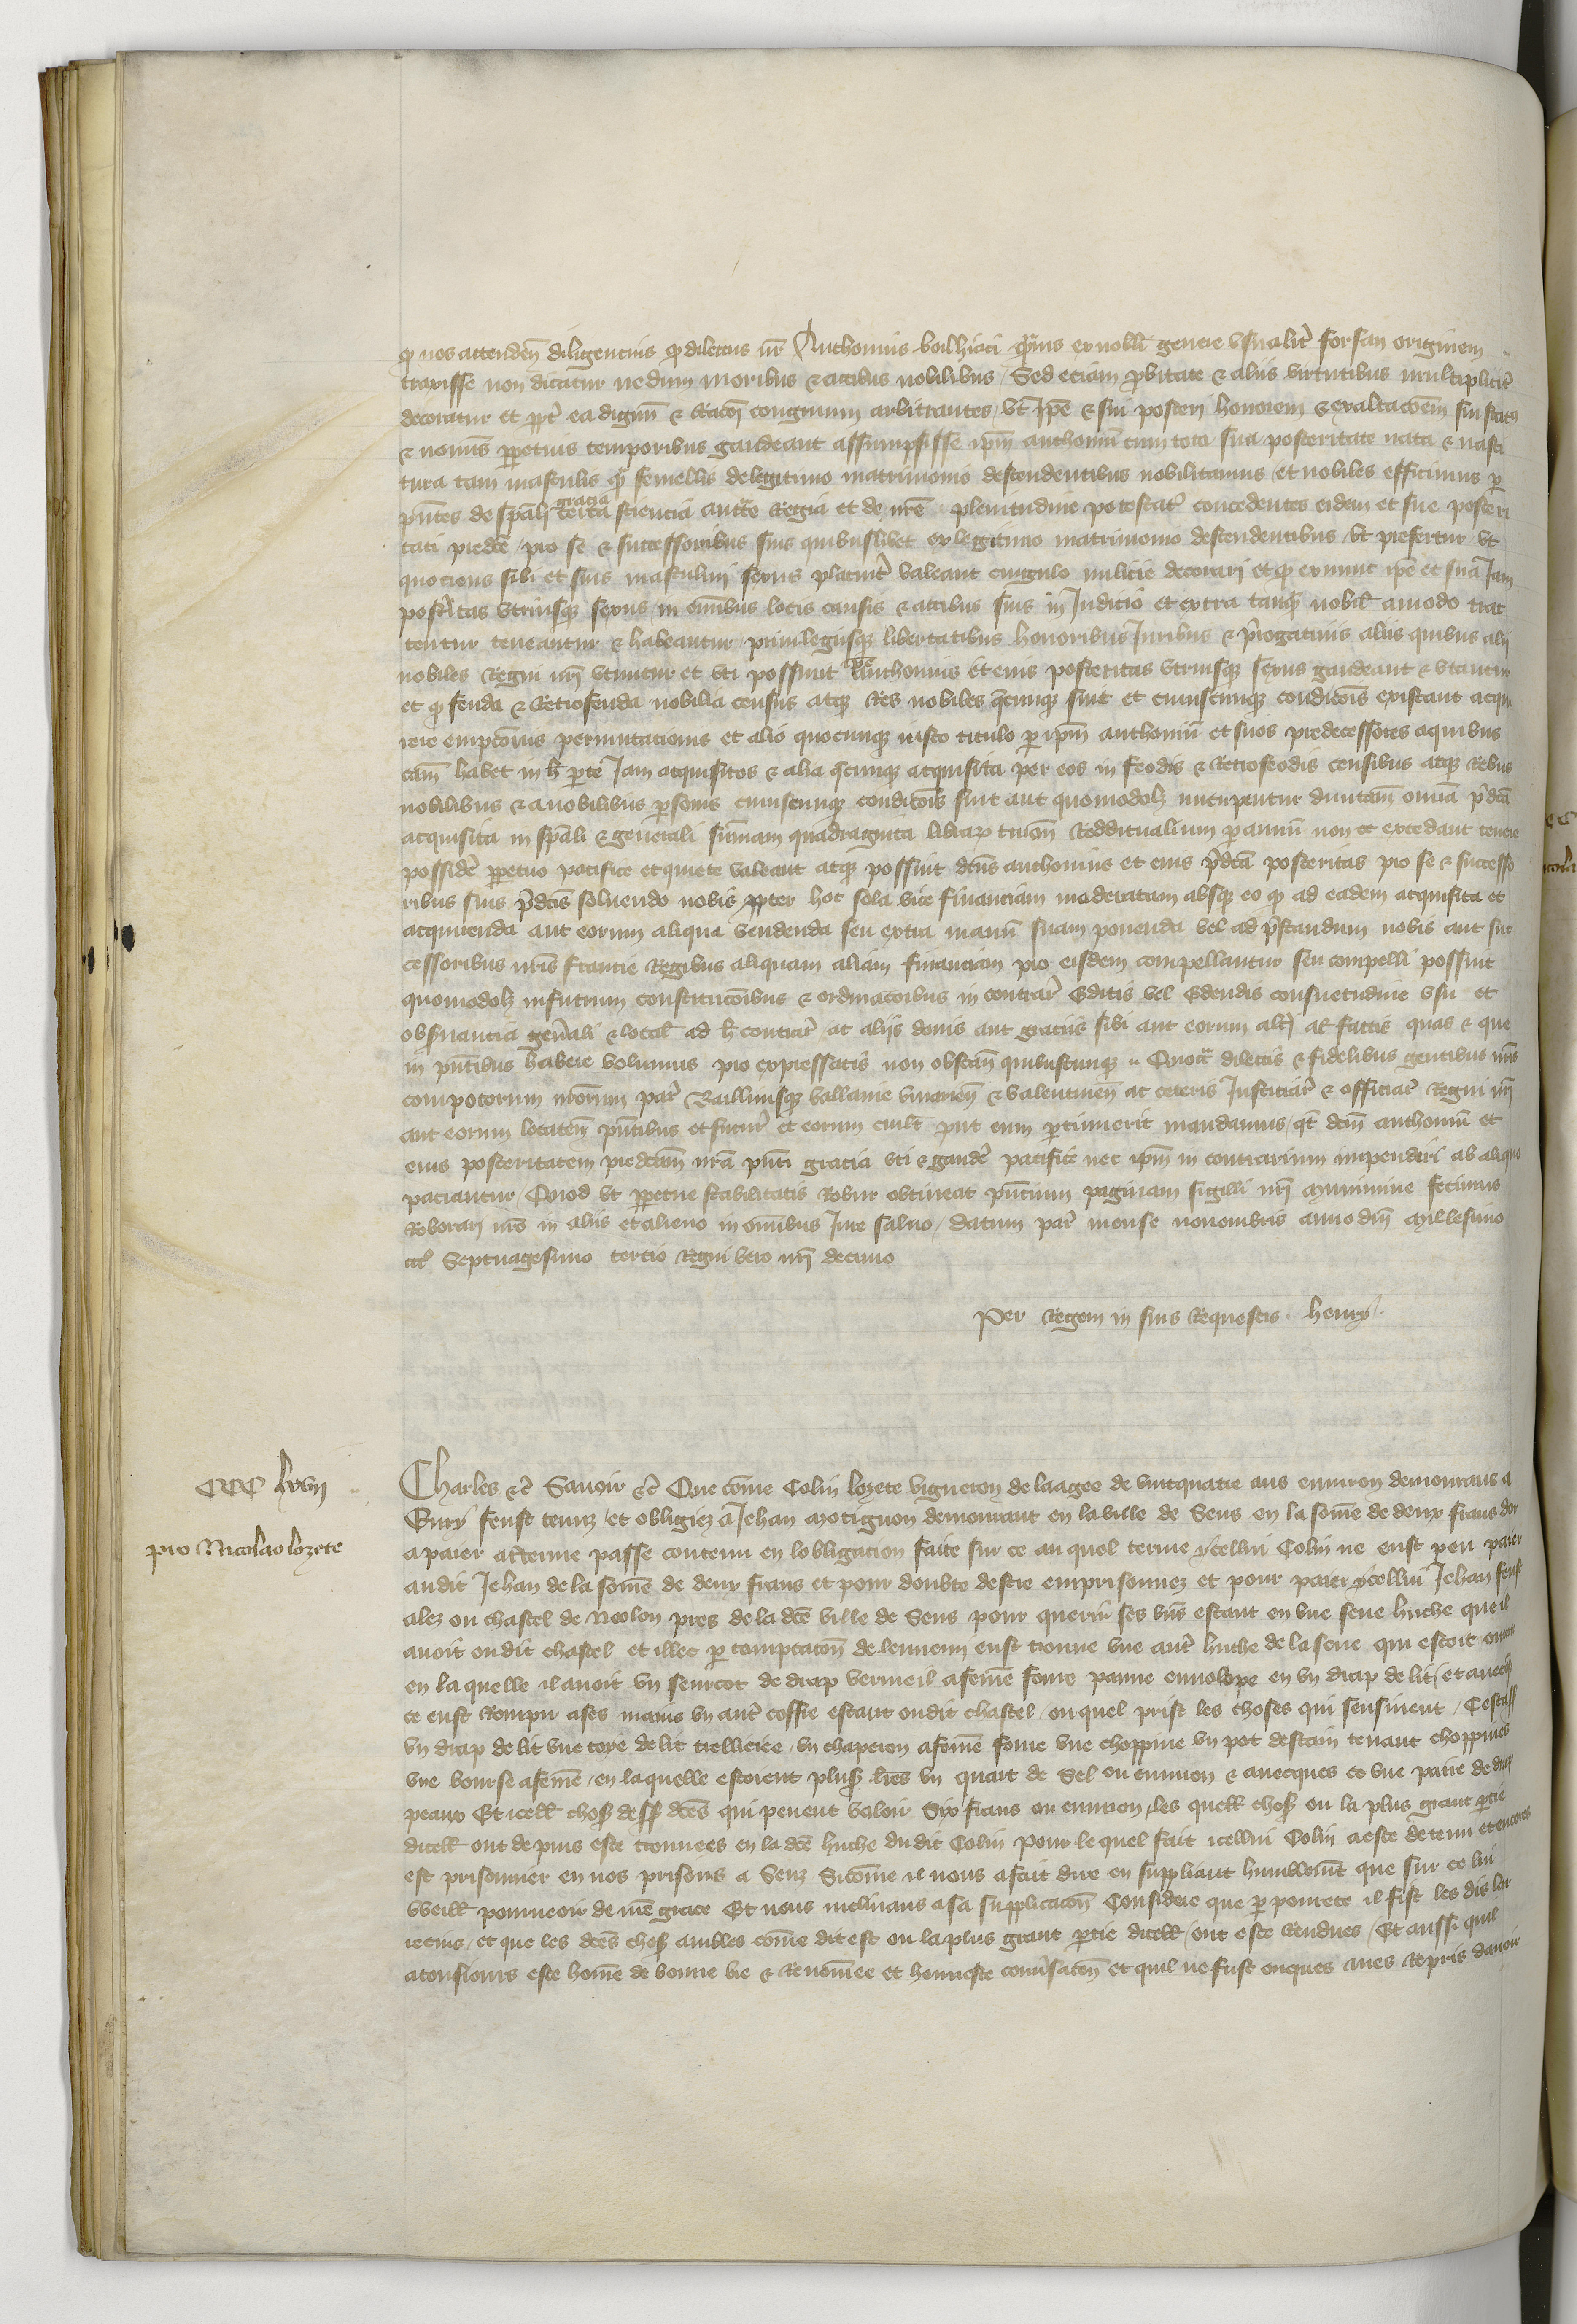 q nos attenden diligencius q dilectus nr Anthonius boilhiaci quius ex nobili genere usualiter forsan originem
traxisse non dicatur nedum moribus & actibus nobilibus Sed eciam probitate & aliis virtutibus multipliciter
decoratur et propter ea dignum & racon congruum arbitrantes ut ipe & sui posteri honorem & exaltacoem sui status
& nominis perpetuis temporibus gaudeant assumpsisse ipm anthonium cum tota sua posteritate nata & nasci
tura tam masculis q femellis de legitimo matrimonio descendentibus nobilitamus et nobiles efficimus per
pntes de spali gracia certa sciencia auctte Regia et de nre plenitudine potestatis concedentes eidem et sue posteri
tati predce pro se & successoribus suis quibuslibet ex legitimo matrimonio descendentibus ut prefertur ut
quociens sibi et suis masculini sexus placuerit valeant cingulo milicie decorari et q ex nunc ipe et sua Jam
posteritas utriusque sexus in omnibus locis causis & actibus suis in Judicio et extra tanq nobiles amodo trac
tentur teneantur & habeantur privilegiisque libertatibus honoribus Juribus & prerogativis aliis quibus alii
nobiles Regni nri utuntur et uti possunt ipe Anthonius et eius posteritas utriusque sexus gaudeant & utantur
et q feuda & Retrofeuda nobilia census atque Res nobiles quecunque sint et cuiuscunque condicois existant acqui
rere empcionis permutacionis et alio quocunque iusto titulo per ipm anthonium et suos predecessores a quibus
cam habet in h parte Jam acquisitos & alia quecunque acquisita per eos in feodis & Retrofeodis censibus atque Rebus
nobilibus & a nobilibus personis cuiuscunque condicois sint aut quomodolz nuncupentur duntam omnia predca
acquisita in spali & generali summam quadraginta librarum turon Reddituallium per annum non excedant tenere
possidere perpetuo pacifice et quiete valeant atque possint dcus anthonius et eius predca posteritas pro se & successo
ribus suis predcis solvendo nobis propter hoc sola vice financiam moderatam absque eo q ad eadem acquisita et
acquirenda aut eorum aliqua vendenda seu extra manum suam ponenda vel ad prestandum nobis aut suc
cessoribus nris francie Regibus aliquam aliam financiam pro eisdem compellantur seu compelli possint
quomodolz in futurum constitucoibus & ordinacoibus in contrar Editis vel Edendis consuetudine usu et
observancia generali & local ad h contrar ac aliis donis aut graciis sibi aut eorum alteri ac factis quas & que
in pntibus habere volumus pro expressatis non obstan quibuscunque Quocirca dilectis & fidelibus gentibus nris
compotorum nrorum par Baillivisque ballanie vivarien & valentinen ac ceteris Justiciar & officiar Regni nri
aut eorum locaten pntibus et futur et eorum cuilt prout eum pertinuerit mandamus qt dcm anthonium et
eius posteritatem predcam nra pnti gracia uti & gaudere pacifice nec ipm in contrarium impendiri ab aliquo
paciantur Quod ut perpetue stabilitatis Robur obtineat pntium paginam sigilli nri Munimine fecimus
Roborari nro in aliis et alieno in omnibus Jure salvo datum par mense novembris anno dni Millesimo
ccc Septuagesimo tercio Regni vero nri decimo
Per Regem in suis Requestis Henry
CCC lxvij
Charles &c Savoir &c Que come Colin lozete vigneron de laagee de vintquatre ans environ demourans a
Evry feust tenuz et obligiez a Jehan Motignon demourant en la ville de Sens en la some de deux frans dor
pro Nicolao lozete
a paier a terme passe contenu en lobligacion faite sur ce au quel terme ycellui Colin ne eust peu paier
audit Jehan de la some de deux frans et pour doubte destre emprisonnez et pour paier ycellui Jehan feust
alez ou chastel de Noolon pres de la dce ville de Sens pour querir ses biens estant en une seue huche que il
avoit ondit chastel et illec per temptacon de lennemi eust trouve une autre huche de la seue qui estoit ouverte
en la quelle il avoit un seurcot de drap vermeil a feme senz panne envolope en un drap de lit et avec
ce eust Rompu a ses mains un autre coffre estant ondit chastel ou quel prist les choses qui sensivent Cest ass
un drap de lit une toye de lit treilliciee un chaperon a feme senz une choppine un pot destain tenant choppines
une bourse a feme en laquelle estoient plus lres un quart de Sel ou environ & avecques ce une paire de drap
peaux Et icell chos dess dces qui pevent valoir Six frans ou environ les quell chos ou la plus grant ptie
dicell ont depuis este trouvees en la dce huche dudit Colin pour le quel fait icellui Colin a este detenu et encores
est prisonnier en nos prisons a Senz Sicome il nous a fait dire en suppliant humblemt que sur ce lui
vueill pourveoir de nre grace Et nous inclinans a sa supplicacon Considere que per povrete il fist les dis lar
recins et que les dces chos ambles come dit est ou la plus grant ptie dicell ont este Rendues Et aussi quil
a tousiours este home de bonne vie & Renomee et honneste conversacon et quil ne fust onques mes Repris davoir